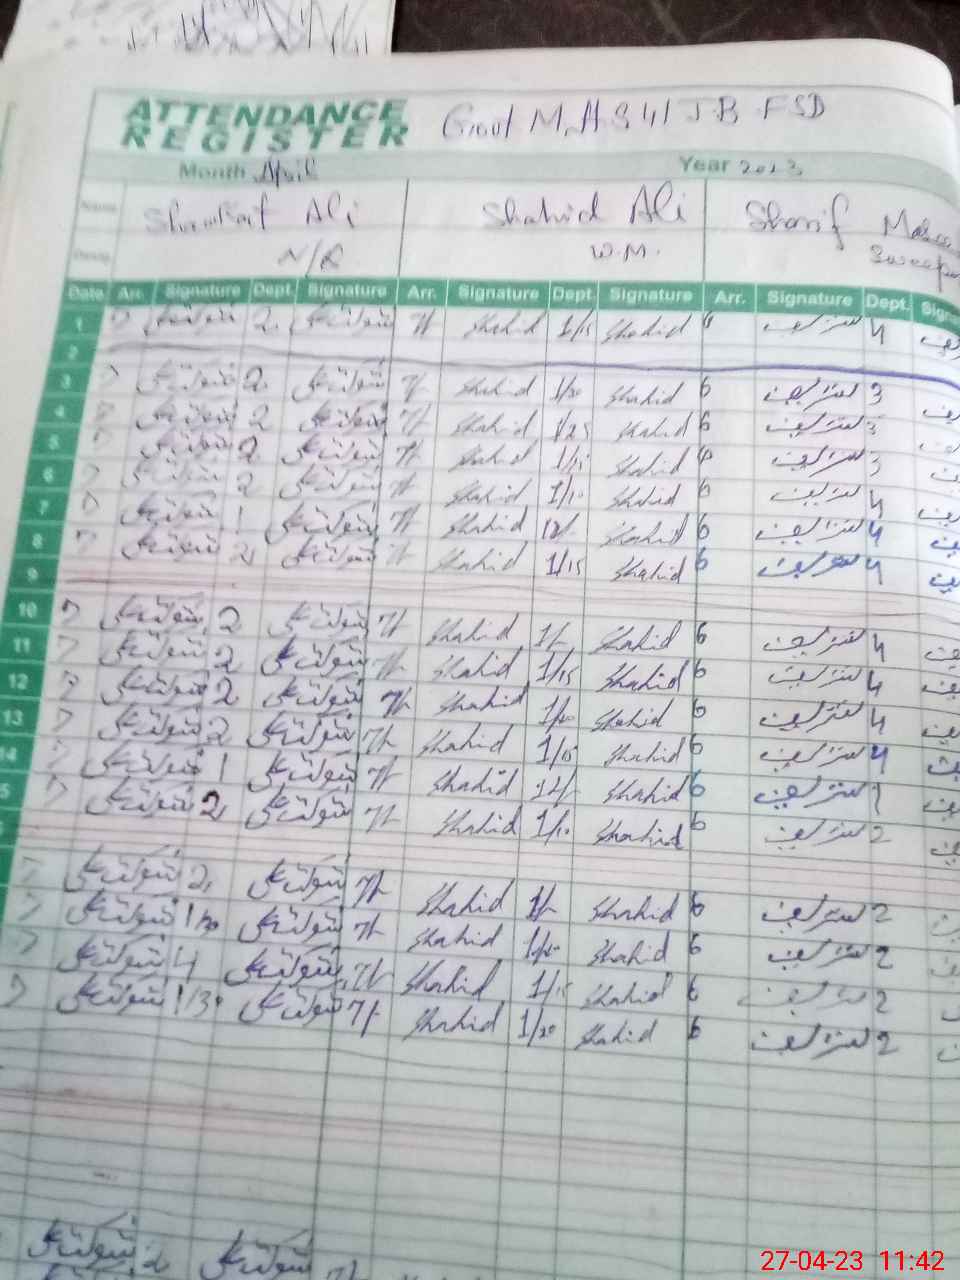 ATTENDANCE REGISTER
Govt M.H.S 41 J.B FSD
Month April Year 2023
Name Shoukat Ali Shahid Ali Sharif
Desig. N/Q W.M.
Date Arr. Signature Dept. Signature Arr. Signature Dept. Signature Arr. Signature Dept.
1 7 شوکت علی 2 شوکت علی 7/- Shahid 1/15 Shahid 6 شریف 4
2
3 7 شوکت علی 2 شوکت علی 7/- Shahid 1/20 Shahid 6 شریف 3
4 7 شوکت علی 2 شوکت علی 7/- Shahid 1/25 Shahid 6 شریف 3
5 7 شوکت علی 2 شوکت علی 7/- Shahid 1/15 Shahid 6 شریف 3
6 7 شوکت علی 2 شوکت علی 7/- Shahid 1/10 Shahid 6 شریف 4
7 7 شوکت علی 1 شوکت علی 7/- Shahid 12/- Shahid 6 شریف 4
8 7 شوکت علی 2 شوکت علی 7/- Shahid 1/15 Shahid 6 شریف 4
9
10 7 شوکت علی 2 شوکت علی 7/- Shahid 1/- Shahid 6 شریف 4
11 7 شوکت علی 2 شوکت علی 7/- Shahid 1/15 Shahid 6 شریف 4
12 7 شوکت علی 2 شوکت علی 7/- Shahid Shahid 6 شریف 4
13 7 شوکت علی 2 شوکت علی 7/- Shahid 1/15 Shahid 6 شریف 4
14 7 شوکت علی 1 شوکت علی 7/- Shahid 12/- Shahid 6 شریف 1
5 7 شوکت علی 2 شوکت علی 7/- Shahid 1/10 Shahid 6 شریف 2
7 شوکت علی 2 شوکت علی 7/- Shahid 1/- Shahid 6 شریف 2
7 شوکت علی 1/30 شوکت علی 7/- Shahid Shahid 6 شریف 2
7 شوکت علی 4 شوکت علی 7/- Shahid 1/15 Shahid 6 شریف 2
7 شوکت علی 1/30 شوکت علی 7/- Shahid 1/20 Shahid 6 شریف 2
شوکت علی 2 شوکت علی 7/-
27-04-23 11:42